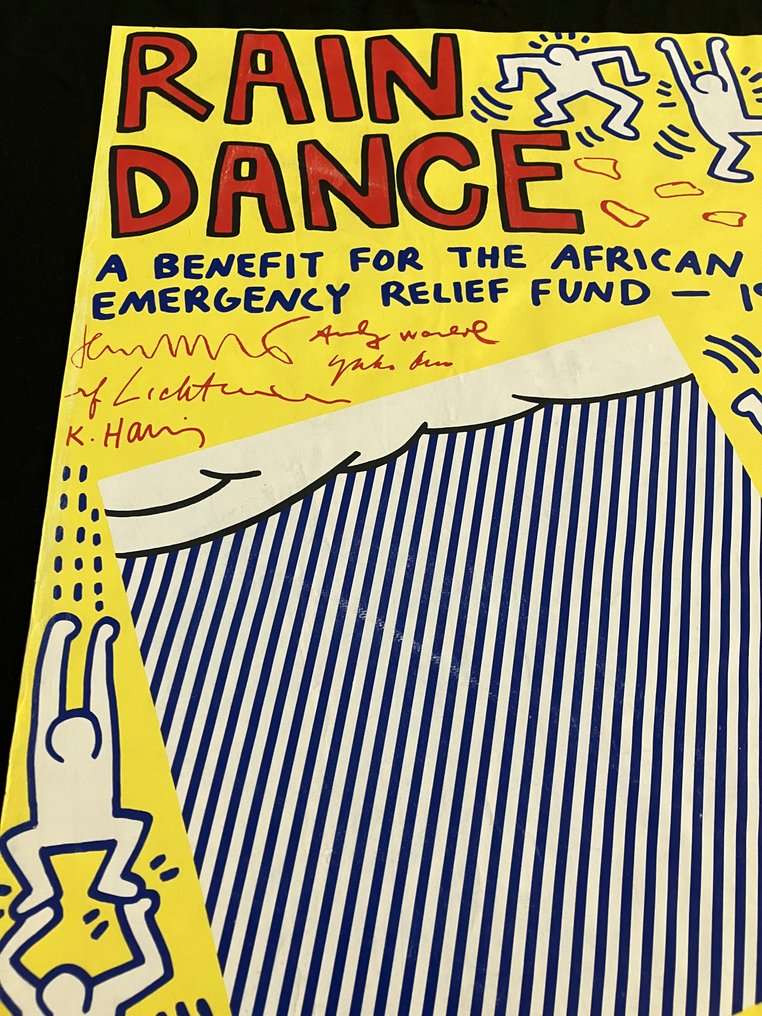 RAIN
DANCE
A BENEFIT FOR THE AFRICAN
EMERGENCY RELIEF FUND — 19
Andy Warhol
yoko ono
rf Lichtenstein
K. Haring